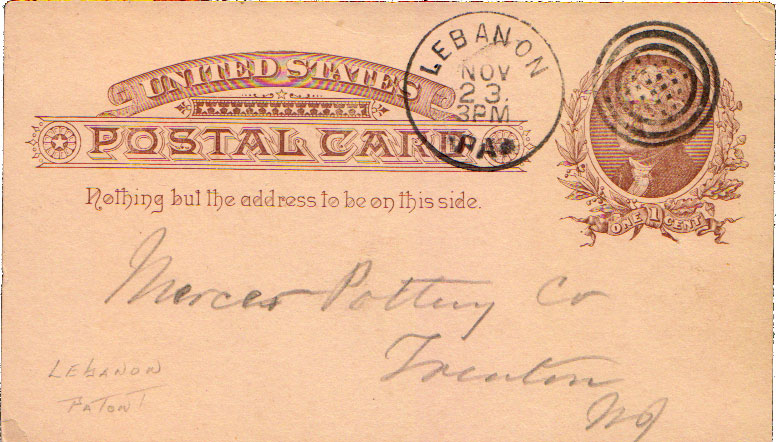 UNITED STATES
POSTAL CARD
Nothing but the address to be on this side.
LEBANON
NOV
23
3PM
PA
ONE 1 CENT
Mercer Pottery Co
Trenton
NJ
LEBANON